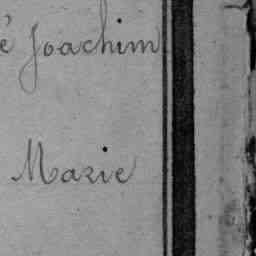 é Joachim
Marie